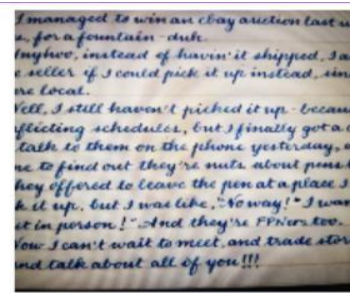 I managed to win an ebay auction last
for a fountain - duh.
Anyhoo, instead of havin' it shipped, I a
seller if I could pick it up instead, sin
local.
Well, I still haven't picked it up - becau
schedules, but I finally got a
talk to them on the phone yesterday,
to find out they're nuts about pens
They offered to leave the pen at a place I
it up, but I was like, "No way!" I wan
it in person!" And they're FPNers too.
Now I can't wait to meet, and trade stor
and talk about all of you!!!